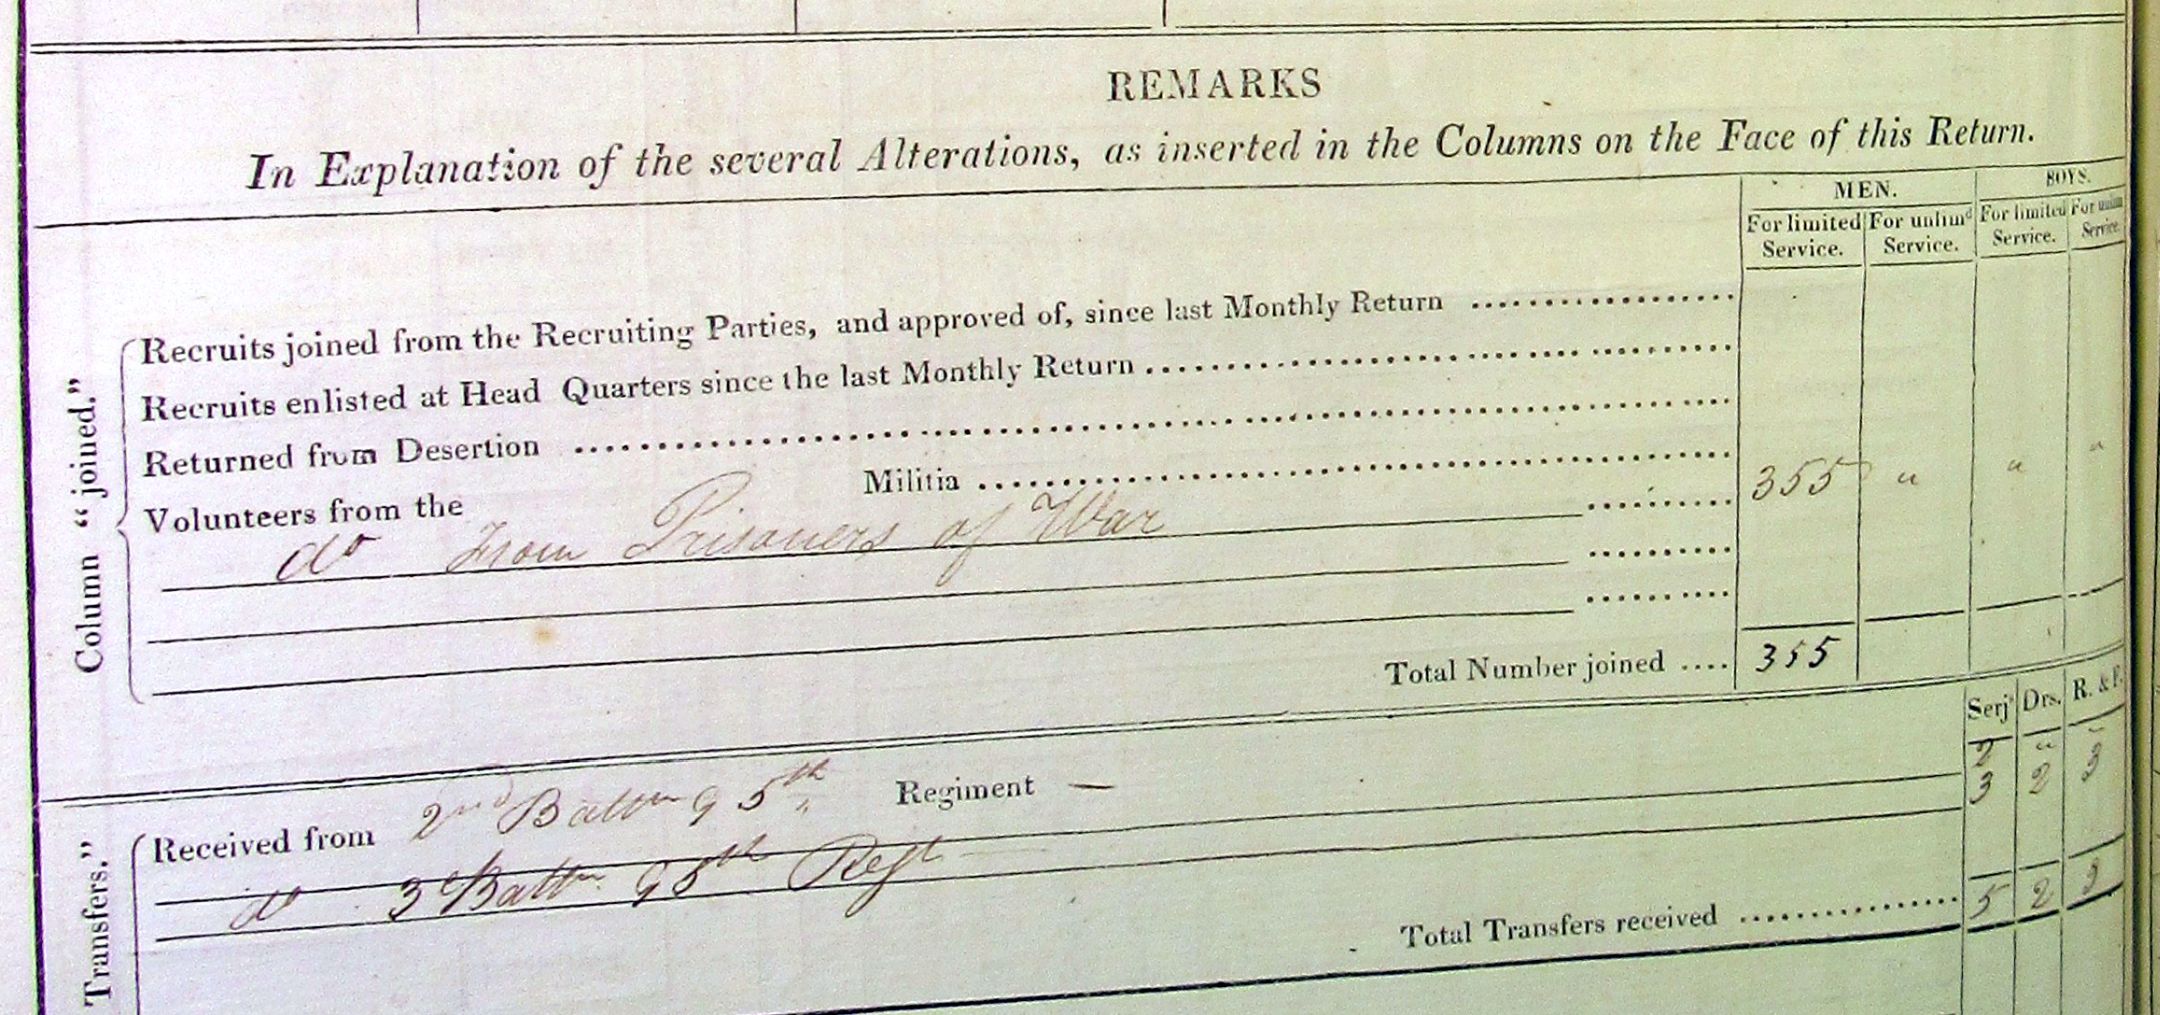 REMARKS
In Explanation of the several Alterations, as inserted in the Columns on the Face of this Return.
MEN. BOYS.
For limited Service. For unlimd Service. For limited Service. For unlim Service.
Column "joined."
Recruits joined from the Recruiting Parties, and approved of, since last Monthly Return ..................
Recruits enlisted at Head Quarters since the last Monthly Return ..................
Returned from Desertion ..................
Volunteers from the Militia ..................
do From Prisoners of War .......... 355 " " "
..........
..........
Total Number joined .... 355
Serjt Drs. R. & F.
Transfers."
Received from 2nd Battn 95th Regiment — 2 " "
do 3d Battn 95th Regt 3 2 3
Total Transfers received ................ 5 2 3